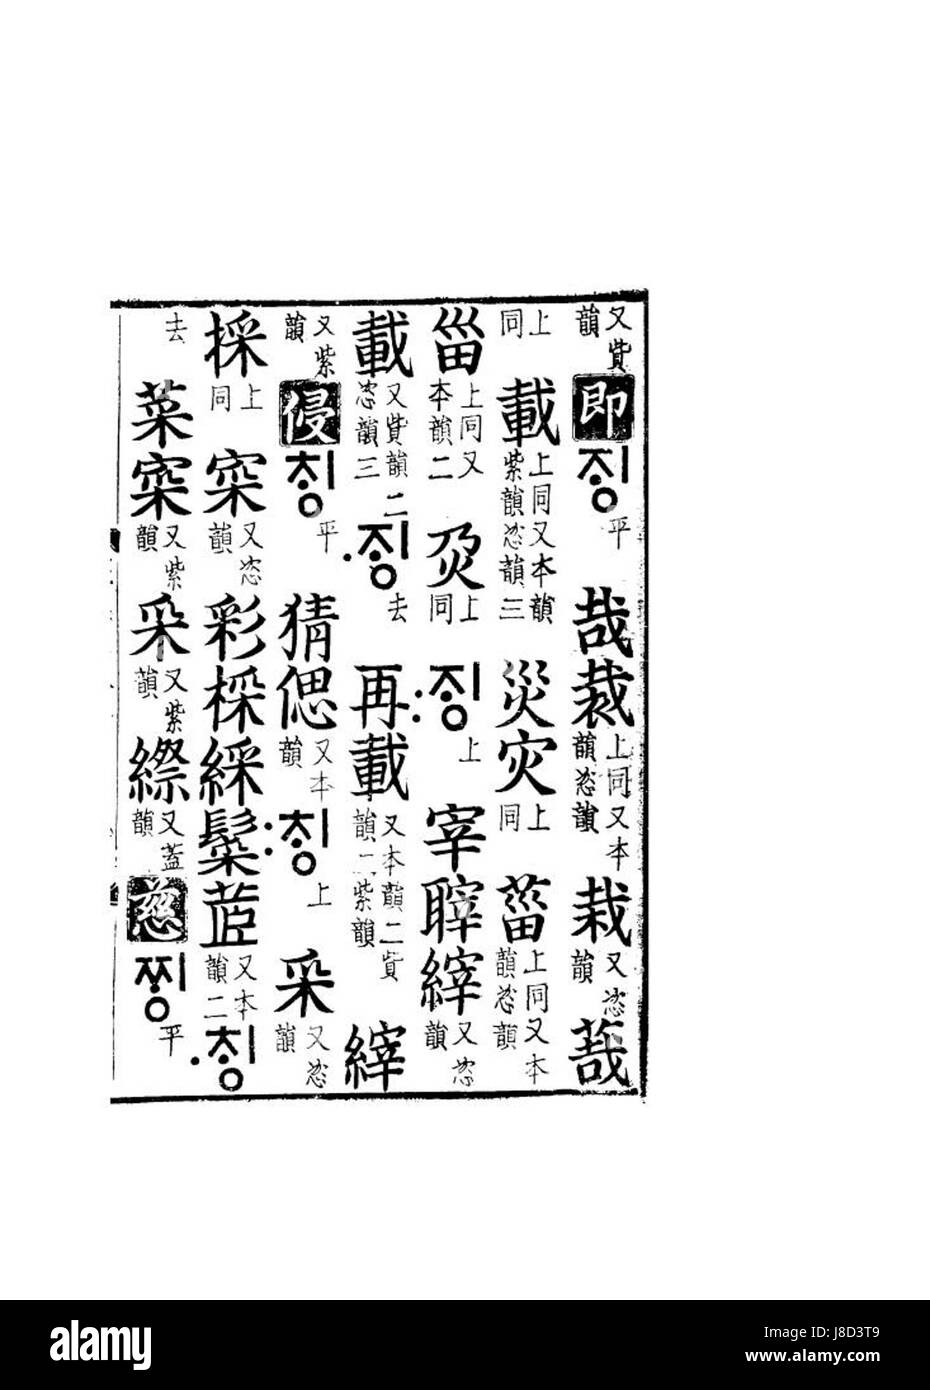 又貲韻 即 ᄌᆡᆼ 平 哉 裁 上同又本韻恣韻 栽 又恣韻
上同 載 上同又本韻紫韻恣韻三 災 灾 上同 菑 上同又本韻恣韻
甾 上同又本韻二 上同 :ᄌᆡᆼ 上 宰 縡 又恣韻
載 又貲韻二恣韻三 ·ᄌᆡᆼ 去 再 載 又本韻二貲韻二紫韻 縡
又紫韻 侵 ᄎᆡᆼ 平 猜 偲 又本韻 :ᄎᆡᆼ 上 采 又恣韻
採 上同 寀 又恣韻 彩 棌 綵 茝 又本韻二 ·ᄎᆡᆼ
去 菜 寀 又紫韻 采 又紫韻 縩 又蓋韻 慈 ᄍᆡᆼ 平
alamy
Image ID: J8D3T9
www.alamy.com